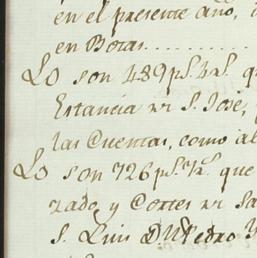 en el presente año,
en Botas..........
Lo son 489ps.4rs. q
Estancia nr S. José,
las Cuentas, como al
Lo son 726ps.7rs. que
zado, y Cortes nr Sa
S. Luis D Pedro